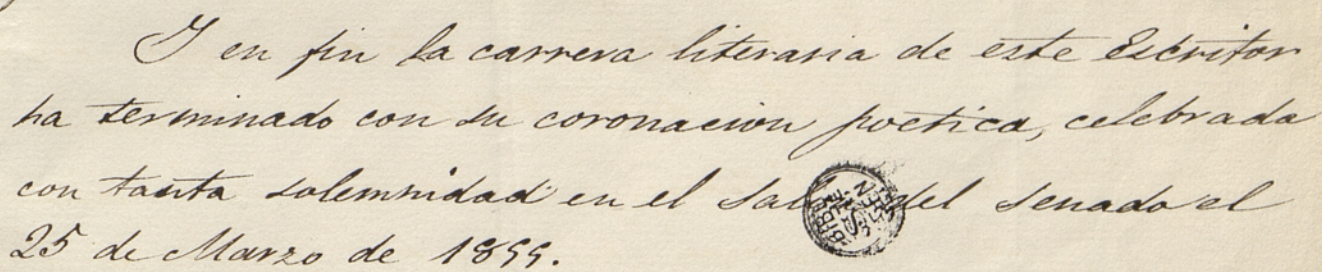 Y en fin la carrera literaria de este Escritor
ha terminado con su coronacion poetica, celebrada
con tanta solemnidad en el salon del senado el
25 de Marzo de 1855.